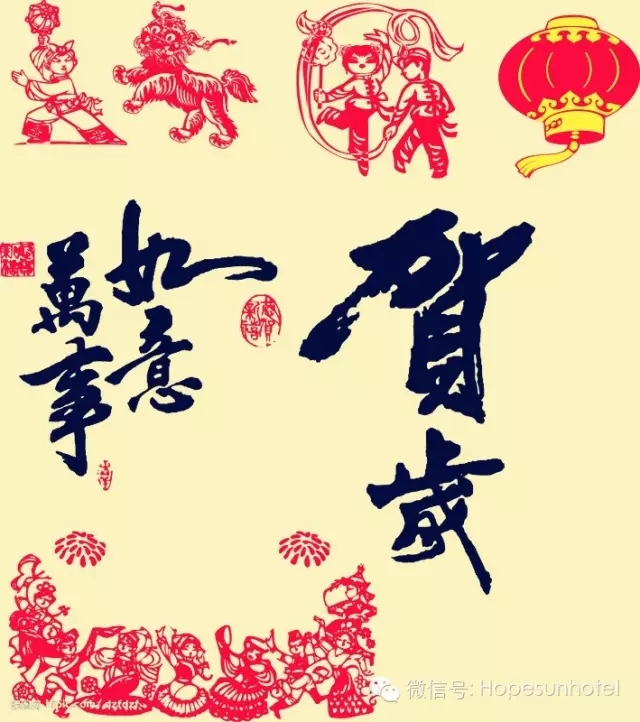 賀歲
萬事
如意
恭賀
新禧
微信号: Hopesunhotel